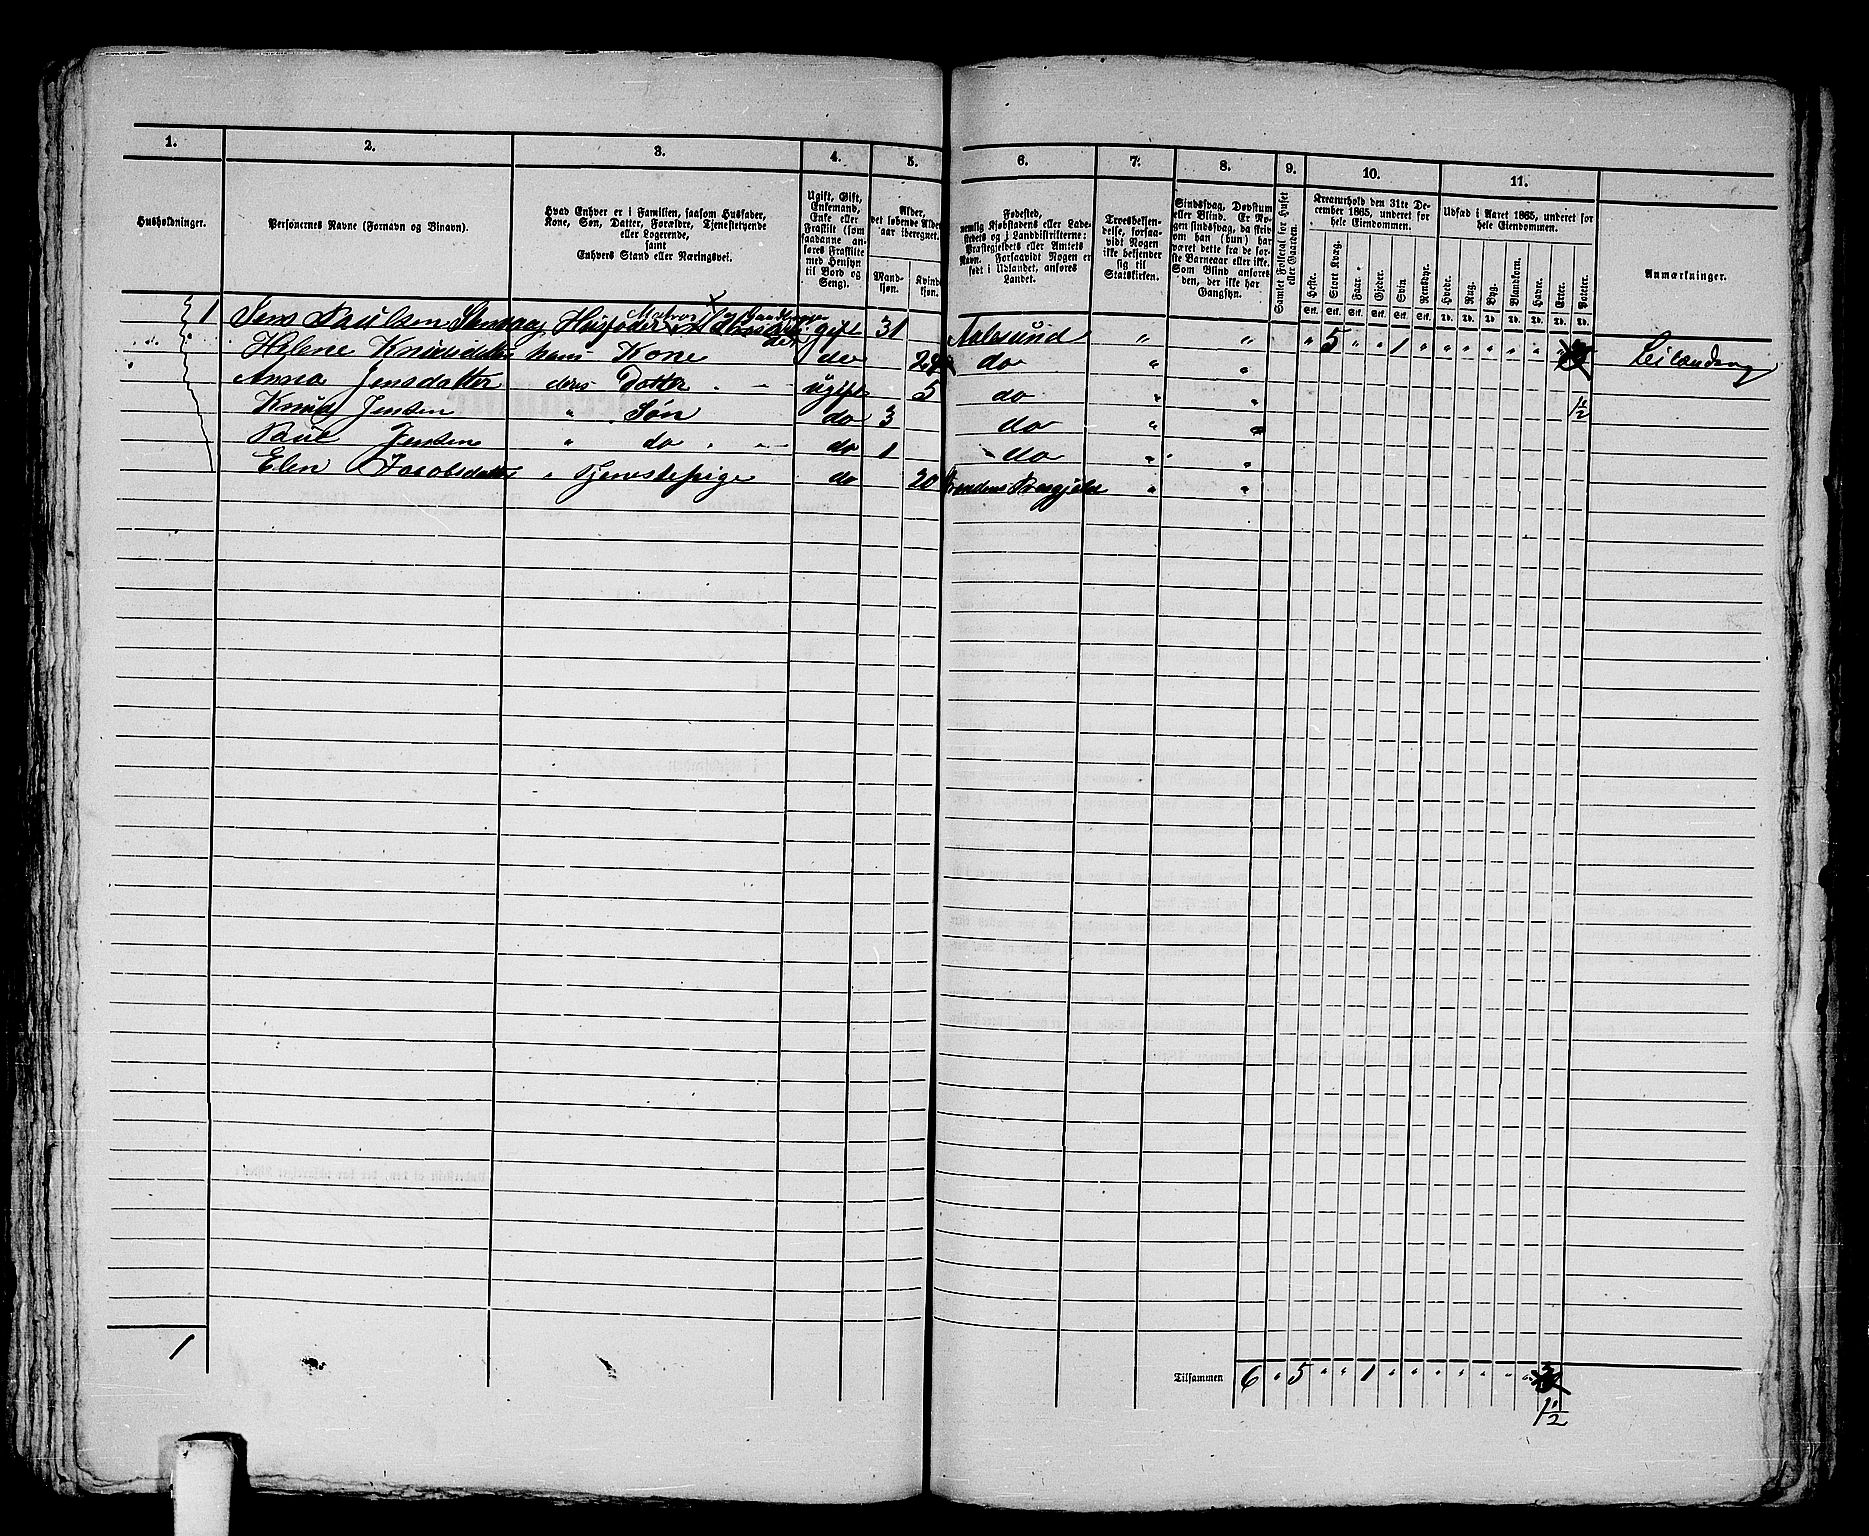 1. 2. 3. 4. 5. 6. 7. 8. 9. 10. 11.
Husholdninger.
Personernes Navne (Fornavn og Binavn).
Hvad Enhver er i Familien, saasom Husfader,
Kone, Søn, Datter, Forældre, Tjenestetyende
eller Logerende,
samt
Enhvers Stand eller Næringsvei.
Ugift, Gift,
Enkemand,
Enke eller
Fraskilt (som
saadanne an-
føres Fraskilte
med Hensyn
til Bord og
Seng).
Alder,
det løbende Alders-
aar iberegnet.
Mand-
kjøn.
Kvind-
kjøn.
Fødested,
nemlig Kjøbstadens eller Lade-
stedets og i Landdistrikterne:
Præstegjeldets eller Amtets
Navn. Forsaavidt Nogen er
født i Udlandet, anføres
Landet.
Troesbekjen-
delse, forsaa-
vidt Nogen
ikke bekjender
sig til
Statskirken.
Sindssvag, Døvstum
eller Blind. Er No-
gen sindssvag, da skriv
om han (hun) har
været dette fra de før-
ste Barneaar eller ikke.
Som Blind anføres
den, der ikke har
Gangsyn.
Samlet Folketal for Huset
eller Gaarden.
Kreaturhold den 31te De-
cember 1865, underet for
hele Eiendommen.
Heste. Stort Kvæg. Faar. Gjeder. Svin Rensdyr.
Skt. Skt. Skt. Skt. Skt. Skt.
Udsæd i Aaret 1865, underet for
hele Eiendommen.
Hvede. Rug. Byg. Blandkorn. Havre. Erter. Poteter.
Td. Td. Td. Td. Td. Td. Td.
Anmærkninger.
1 Jens Paulsen Husfader Matros gift 31 Aalesund " " " 5 " " 1 " " " " " " " Leilænding
Helene Knudsdatter hans Kone do do " "
Anna Jensdatter deres Datter ugift 5 do " " 1½
Knud Jensen " Søn do 3 do "
Paul Jensen " do do 1 do " "
Elen Jacobsdatter " Tjenestepige do 20 " "
1
Tilsammen 6 " 5 " " 1 " " " " " " "
1½